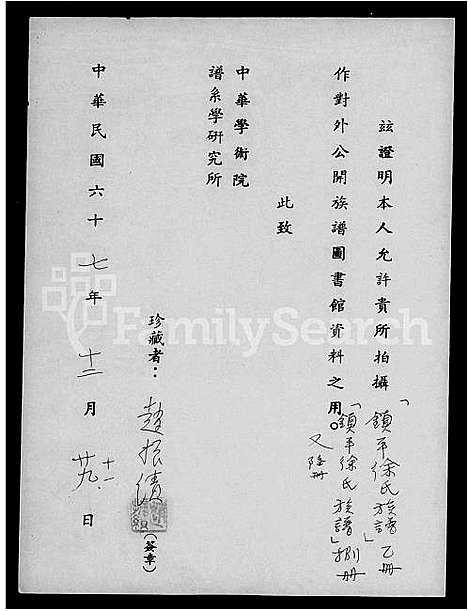 茲證明本人允許貴所拍攝「鎮平徐氏族譜」乙冊
「鎮平徐氏族譜」捌冊
作對外公開族譜圖書館資料之用。
又 冊
此致
中華學術院
譜系學研究所
珍藏者：
趙振績
（簽章）
中華民國六十七年 十二 月 廿九 日
十一
FamilySearch